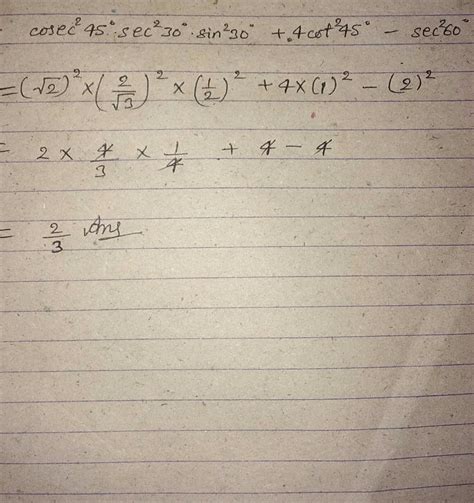 cosec²45°. sec²30°. sin²30° + 4cot²45° - sec²60°
= (√2)² × (2/√3)² × (1/2)² + 4×(1)² - (2)²
= 2 × 4/3 × 1/4 + 4 - 4
= 2/3 Ans